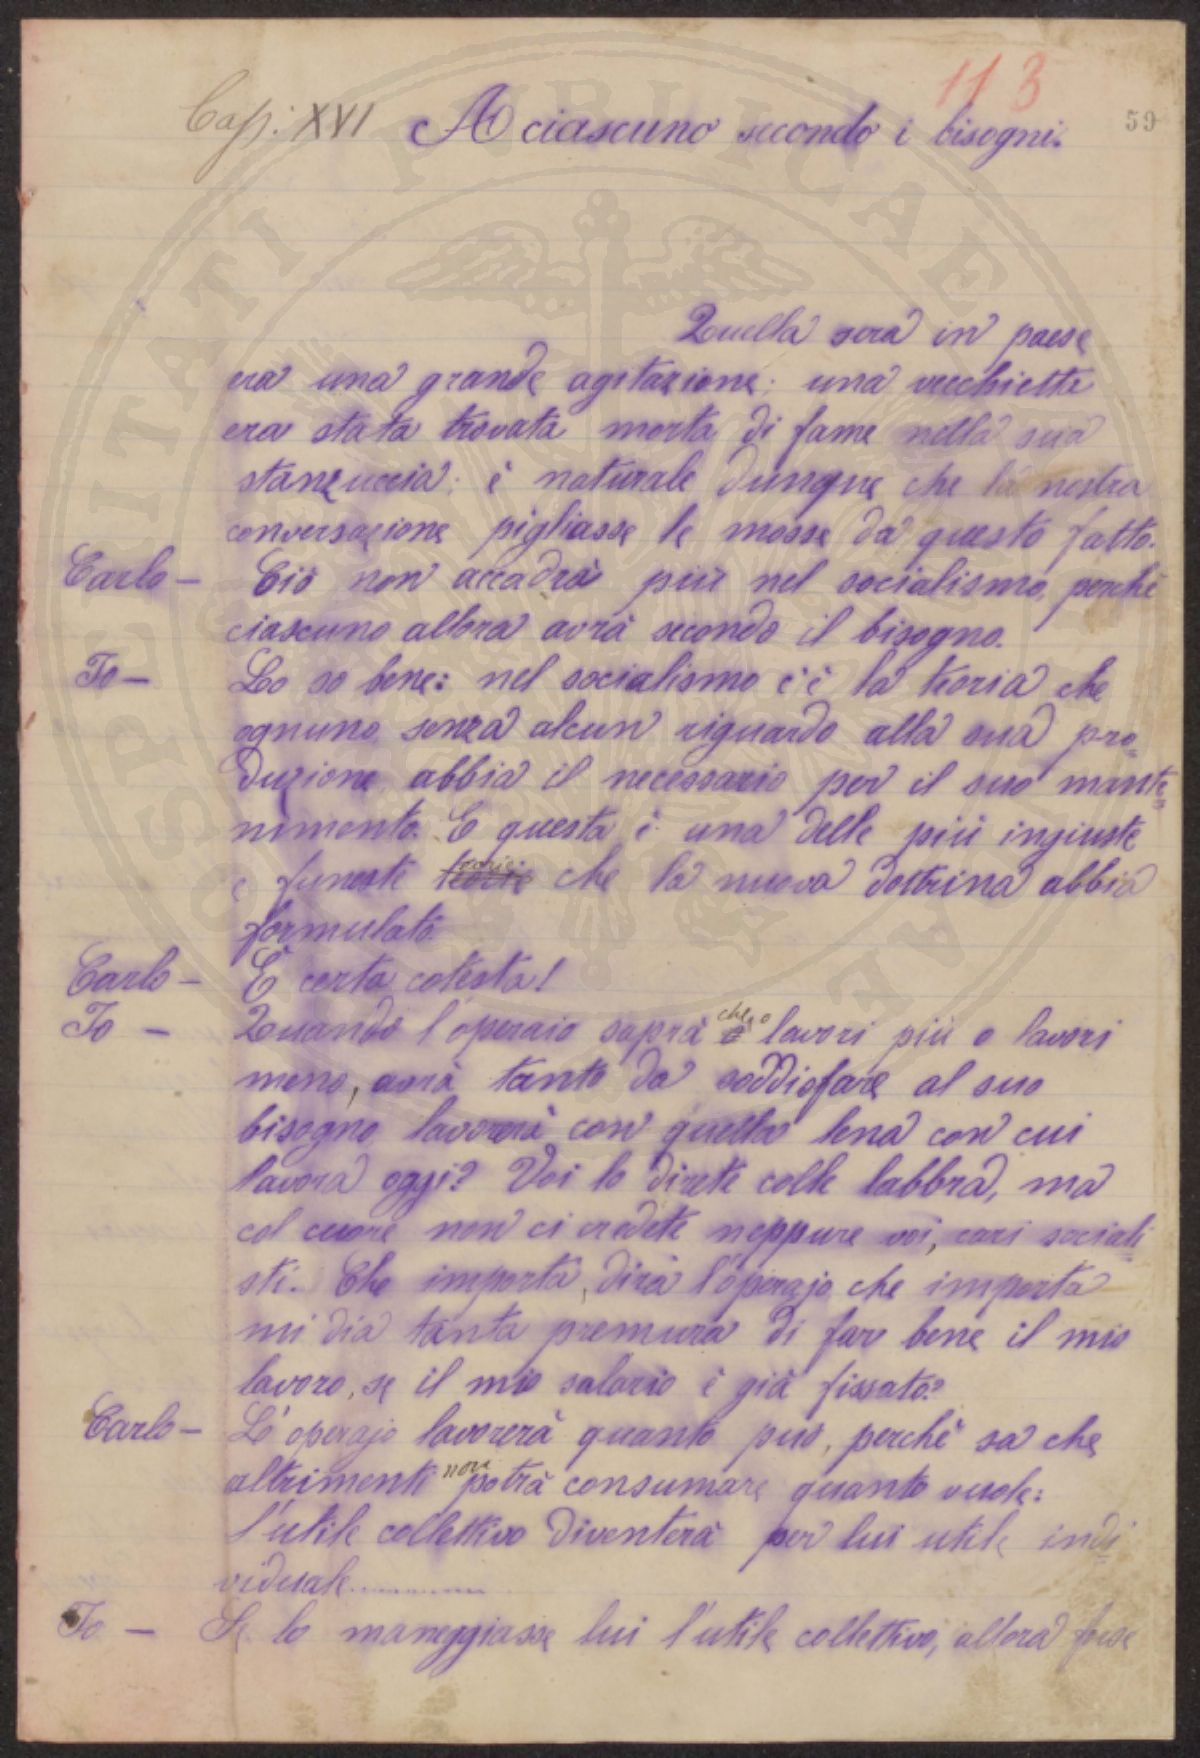 113
59
Cap. XVI A ciascuno secondo i bisogni.
Quella sera in paese
era una grande agitazione; una vecchietta
era stata trovata morta di fame nella sua
stanzuccia; è naturale dunque che la nostra
conversazione pigliasse le mosse da questo fatto.
Carlo — Ciò non accadrà più nel socialismo, perchè
ciascuno allora avrà secondo il bisogno.
Io — Lo so bene: nel socialismo c'è la teoria che
ognuno, senza alcun riguardo alla sua pro=
duzione, abbia il necessario per il suo mante=
nimento. E questa è una delle più ingiuste
e funeste teorie che la nuova dottrina abbia
formulato.
Carlo — È certa cotesta!
Io — Quando l'operaio saprà che, o lavori più o lavori
meno, avrà tanto da soddisfare al suo
bisogno, lavorerà con quella lena con cui
lavora oggi? Voi lo direte colle labbra, ma
col cuore non ci credete neppure voi, cari sociali=
sti. Che importa, dirà l'operajo, che importa
mi dia tanta premura di far bene il mio
lavoro, se il mio salario è già fissato?
Carlo — L'operajo lavorerà quanto può, perchè sa che
altrimenti non potrà consumare quanto vuole:
l'utile collettivo diventerà per lui utile indi=
viduale............
Io — Se lo maneggiasse lui l'utile collettivo, allora forse
SOSPITATI PUBLICAE